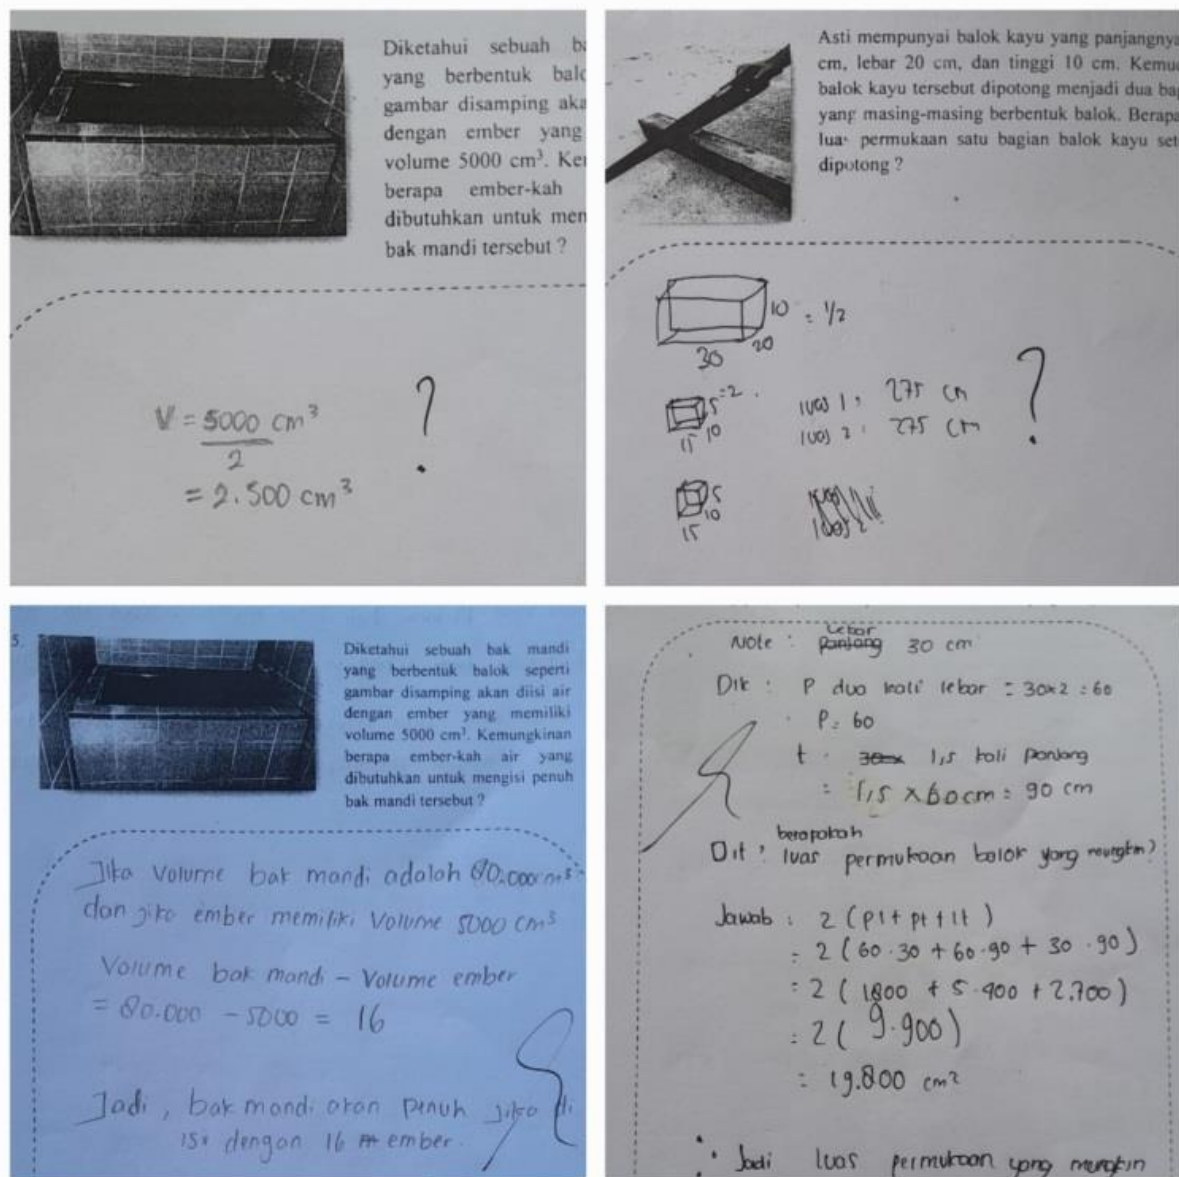 Diketahui sebuah
yang berbentuk
gambar disamping
dengan ember yang
volume 5000 cm³.
berapa ember-kah
dibutuhkan untuk
bak mandi tersebut ?
V = 5000 cm³
2
= 2.500 cm³
?
Asti mempunyai balok kayu yang panjangnya
cm, lebar 20 cm, dan tinggi 10 cm.
balok kayu tersebut dipotong menjadi dua
yang masing-masing berbentuk balok.
permukaan satu bagian balok kayu
dipotong ?
10 = 1/2
20
30
5 = 2
15 10
luas 1 : 275 cm
luas 2 : 275 cm
?
5
10
15
5.
Diketahui sebuah bak mandi
yang berbentuk balok seperti
gambar disamping akan diisi air
dengan ember yang memiliki
volume 5000 cm³. Kemungkinan
berapa ember-kah air yang
dibutuhkan untuk mengisi penuh
bak mandi tersebut ?
Jika Volume bak mandi adalah 80.000 cm³
dan jika ember memiliki Volume 5000 cm³
Volume bak mandi - Volume ember
= 80.000 - 5000 = 16
Jadi, bak mandi akan penuh jika di
isi dengan 16 ember.
Note : lebar 30 cm
Dik : P dua kali lebar = 30×2 = 60
P = 60
t : 1,5 kali panjang
= 1,5 × 60 cm = 90 cm
berapakah
Dit : luas permukaan balok yang mungkin?
Jawab : 2 (pl + pt + lt)
= 2 (60 · 30 + 60 · 90 + 30 · 90)
= 2 (1800 + 5.400 + 2.700)
= 2 (9.900)
= 19.800 cm²
∴ Jadi luas permukaan yang mungkin